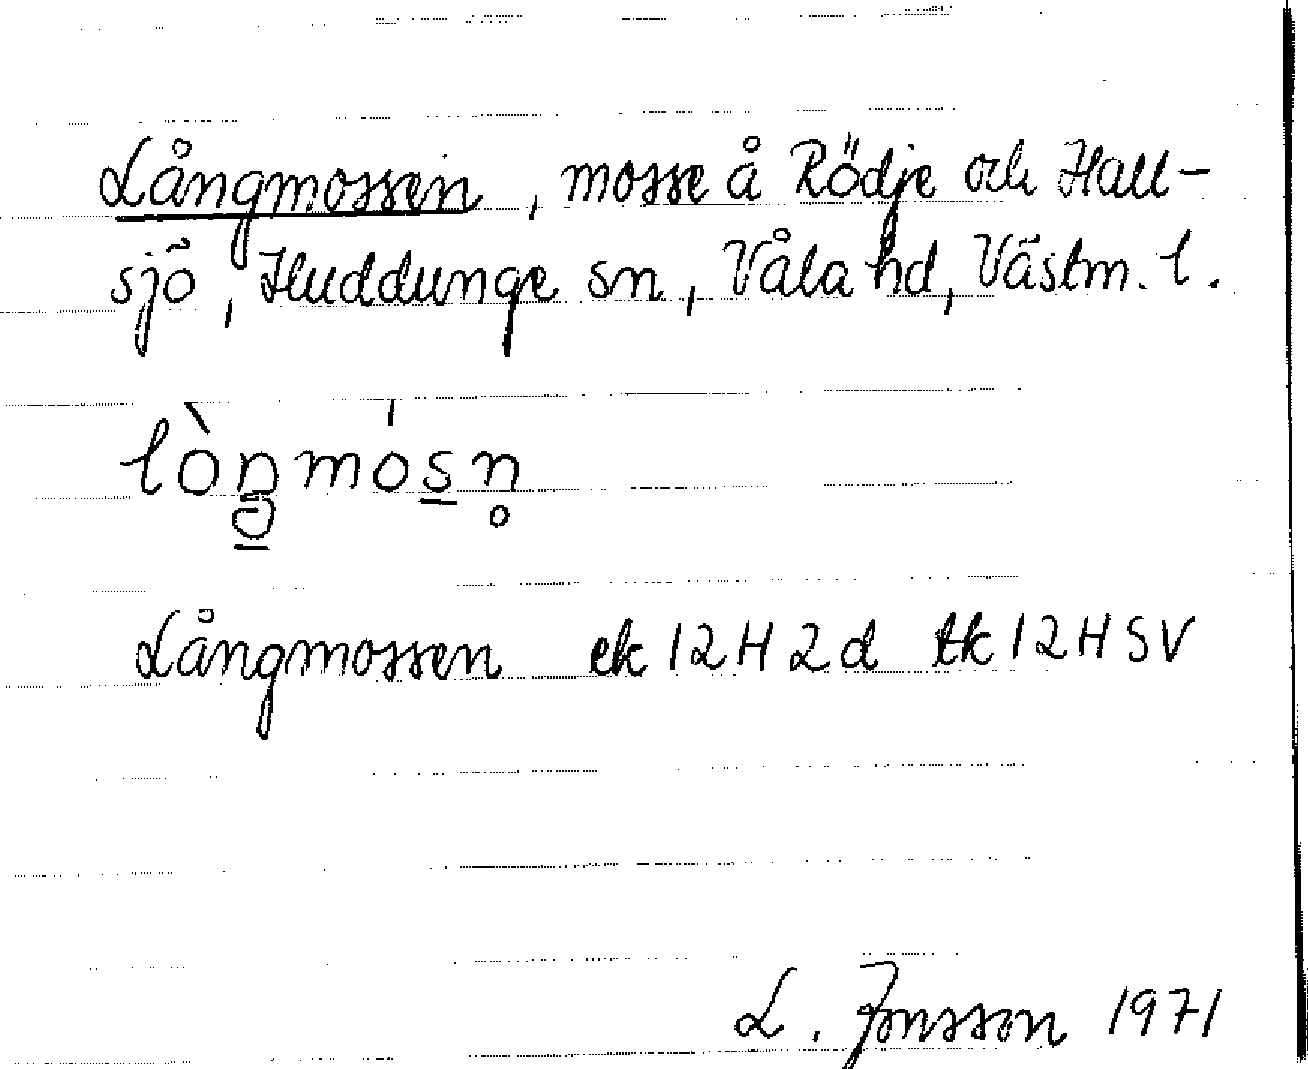 Långmossen, mosse å Rödje och Hall-
sjö, Huddunge sn, Våla hd, Västm. l.
lòŋ̲mós̲n̥
Långmossen ek 12H2d tk 12HSV
L. Jonsson 1971